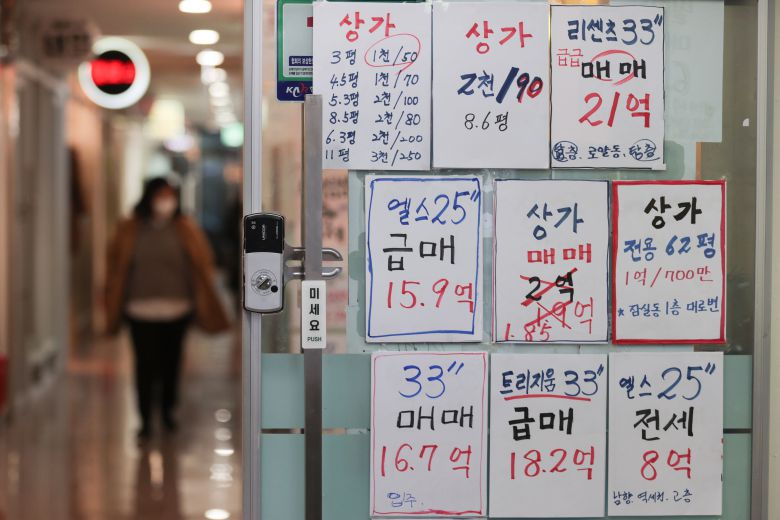 상가
3평 1천/50
4.5평 1천/70
5.3평 2천/100
8.5평 2천/80
6.3평 2천/200
11평 3천/250
상가
2천/90
8.6평
리센츠 33"
급급
매매
21억
로얄동, 탑층
엘스 25"
급매
15.9억
상가
매매
2억
1.9억
1.85
상가
전용 62평
1억/700만
*잠실동 1층 대로변
미세요
PUSH
33"
매매
16.7억
입주.
트리지움 33"
급매
18.2억
엘스 25"
전세
8억
남향 역세권. 고층